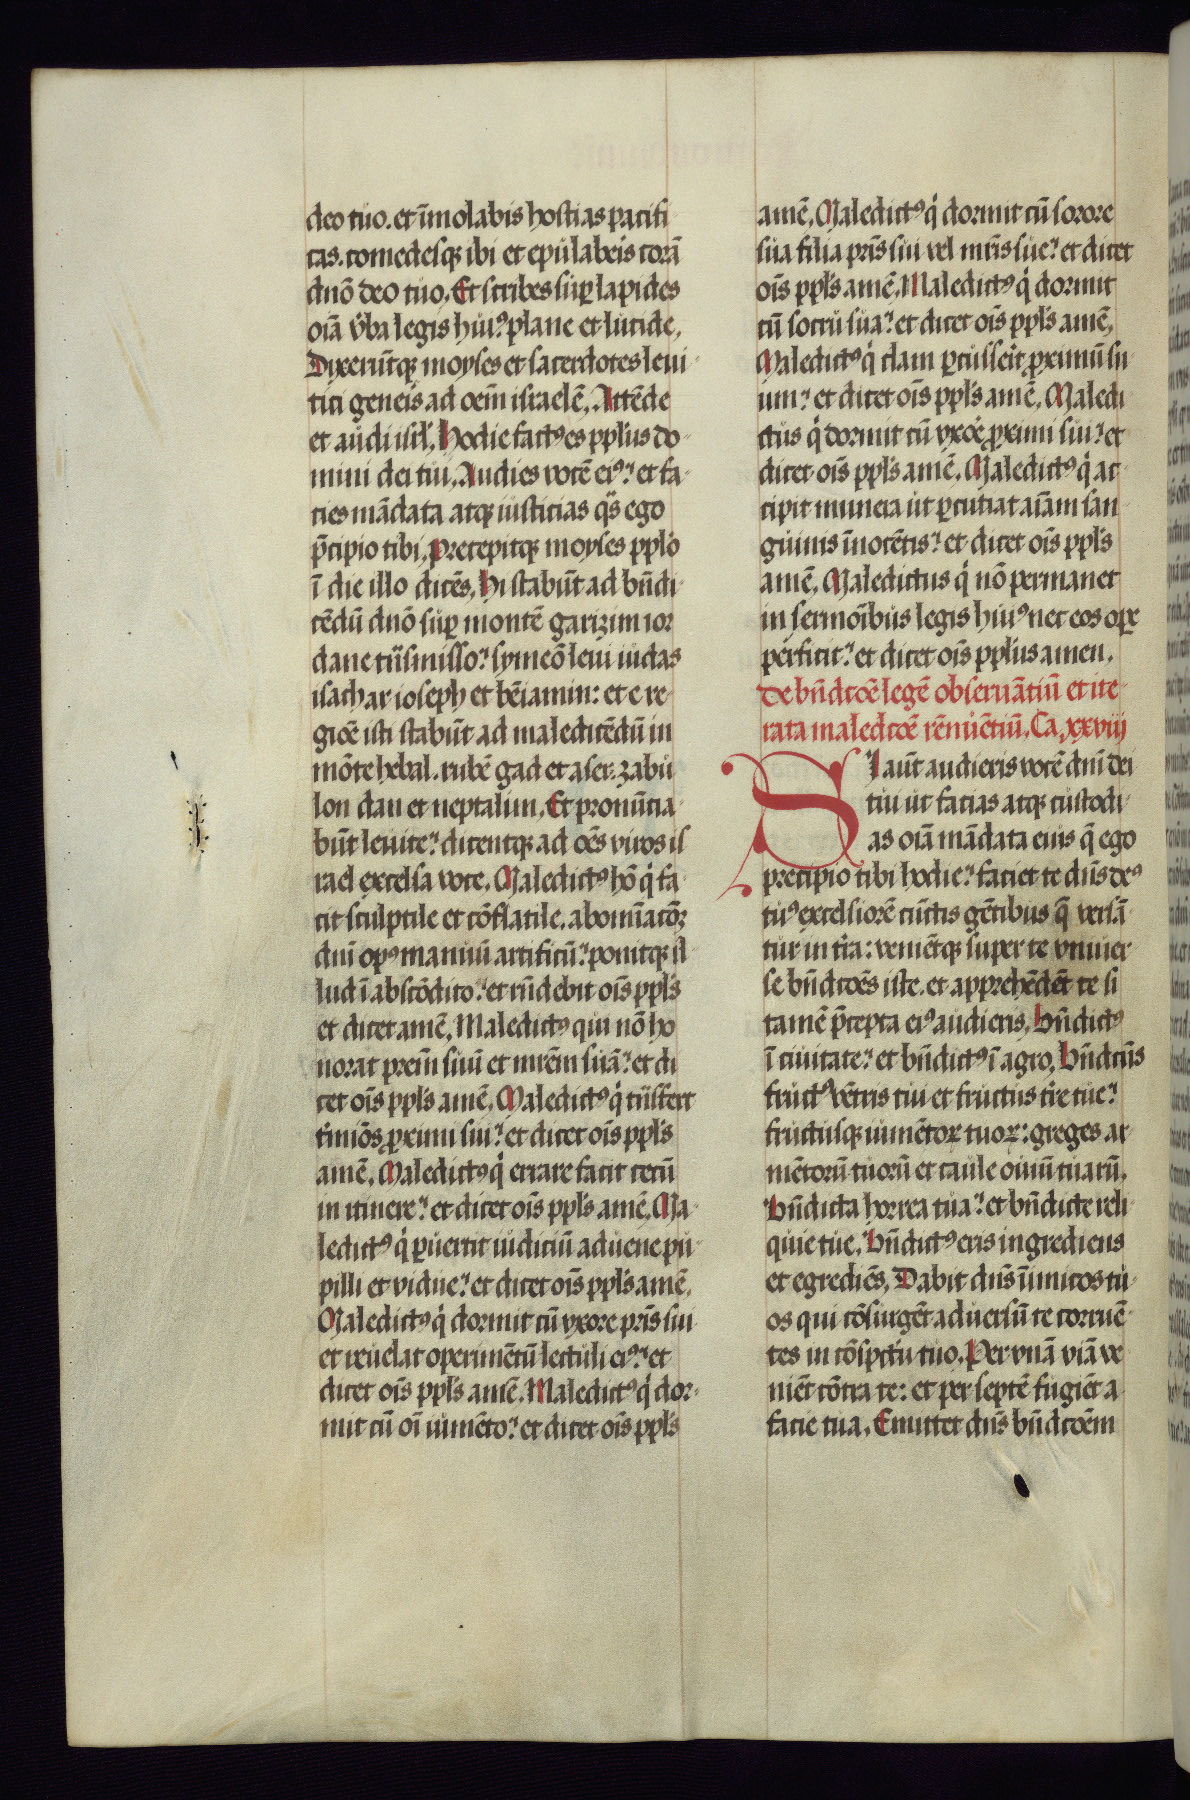 deo tuo. et īmolabis hostias pacifi
cas. comedesqꝫ ibi et epulaberis corā
dnō deo tuo. Et scribes suꝑ lapides
oīa v̓ba legis huiꝰ plane et lucide.
Dixerūtqꝫ moyses et sacerdotes leui
tici gen̄eis ad oēm israelē. Attēde
et audi isrl̓. Hodie factꝰ es ppl̓us do
mini dei tui. Audies vocē eiꝰ: et fa
cies mādata atqꝫ iusticias q̄s ego
p̄cipio tibi. Precepitqꝫ moyses pplo
ī die illo dicēs. Hi stabūt ad bn̄di
cēdū dnō suꝑ montē garizim ior
dane trāsmisso: symeō leui iudas
isachar ioseph et bēiamin: et e re
giōe isti stabūt ad maledicēdū in
mōte hebal. rubē gad et aser. zabu
lon dan et neptalim. Et pronūcia
būt leuite: dicentqꝫ ad oēs viros is
rael excelsa voce. Maledictꝰ hō q̓ fa
cit sculptile et cōflatile. abomiacōꝫ
dn̄i opꝰ manuū artificū: ponitqꝫ il
lud ī abscōdito: et rn̄debit oīs ppl̓s
et dicet amē. Maledictꝰ qui nō ho
norat prēm suū et mrēm suā: et di
cet oīs ppl̓s amē. Maledictꝰ q̓ trāsfert
t̓miōs ꝓximi sui: et dicet oīs ppl̓s
amē. Maledictꝰ q̓ errare facit cecū
in itinere: et dicet oīs ppl̓s amē. Ma
ledictꝰ q̓ ꝑuertit iudiciū aduene pu
pilli et vidue: et dicet oīs ppl̓s amē.
Maledictꝰ q̓ dormit cū vxore pr̄is sui
et reuelat operimētū lectuli eiꝰ: et
dicet oīs ppl̓s amē. Maledictꝰ q̓ dor
mit cū oī iumēto: et dicet oīs ppl̓s
amē. Maledictꝰ q̓ dormit cū sorore
sua filia pr̄is sui vel mr̄is sue: et dicet
oīs ppl̓s amē. Maledictꝰ q̓ dormit
cū socru sua: et dicet oīs ppl̓s amē.
Maledictꝰ q̓ clam ꝑcusserit ꝓximū su
um: et dicet oīs ppl̓s amē. Maledi
ctus q̓ dormit cū vxōe ꝓximi sui: et
dicet oīs ppl̓s amē. Maledictꝰ q̓ ac
cipit munera ut ꝑcutiat aīam san
guinis īnocētis: et dicet oīs ppl̓s
amē. Maledictus q̓ nō permanet
in sermōibus legis huiꝰ nec eos oꝑe
perficit: et dicet oīs ppl̓us amen.
De bn̄dcōe legē obseruātiū et ite
rata maledcōe rēnuētiū. Ca. xxviii
SI aūt audieris vocē dn̄i dei
tui ut facias atqꝫ custodi
as oīa mādata eius q̄ ego
precipio tibi hodie: faciet te dn̄s deꝰ
tuꝰ excelsiorē cūctis gētibus q̄ versā
tur in tr̄a: veniētqꝫ super te vniuer
se bn̄dcōes iste. et apprehēdēt te si
tamē p̄cepta eiꝰ audieris. Bn̄dictꝰ
ī ciuitate: et bn̄dictꝰ ī agro. Bn̄dctūs
fructꝰ vētris tui et fructus tr̄e tue:
fructusqꝫ iumētoꝝ tuoꝝ: greges ar
mētorū tuorū et caule ouiū tuarū.
Bn̄dicta horrea tua: et bn̄dicte reli
quie tue. Bn̄dictꝰ eris ingrediens
et egrediēs. Dabit dn̄s īimicos tu
os qui cōsurgēt aduersū te corruē
tes in cōspctū tuo. Per vnā viā ve
niēt cōtra te: et per septē fugiēt a
facie tua. Emittet dn̄s bn̄dcōem